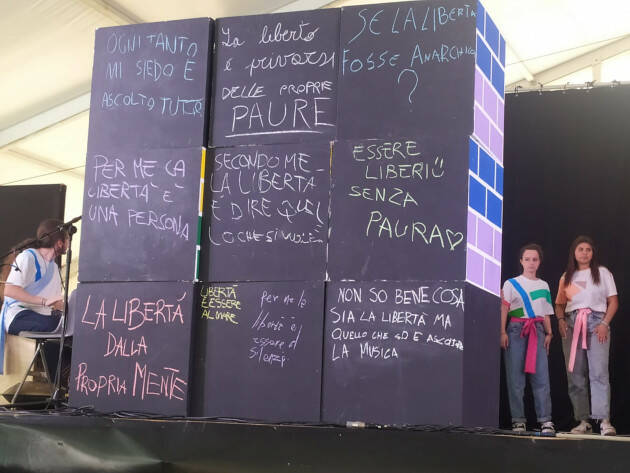 OGNI TANTO
MI SIEDO E
ASCOLTO TUTTI
La libertà
è privarsi
DELLE PROPRIE
PAURE
SE LA LIBERTÀ
FOSSE ANARCHIA
?
PER ME LA
LIBERTÀ È
UNA PERSONA
SECONDO ME
LA LIBERTÀ
È DIRE QUEL
LO CHE SI VUOLE
ESSERE
LIBERI
SENZA
PAURA
LA LIBERTÀ
DALLA
PROPRIA MENTE
LIBERTÀ
È ESSERE
AL MARE
Per me la
libertà è
essere
silenzi
NON SO BENE COSA
SIA LA LIBERTÀ MA
QUELLO CHE SO È ASCOLTA
LA MUSICA